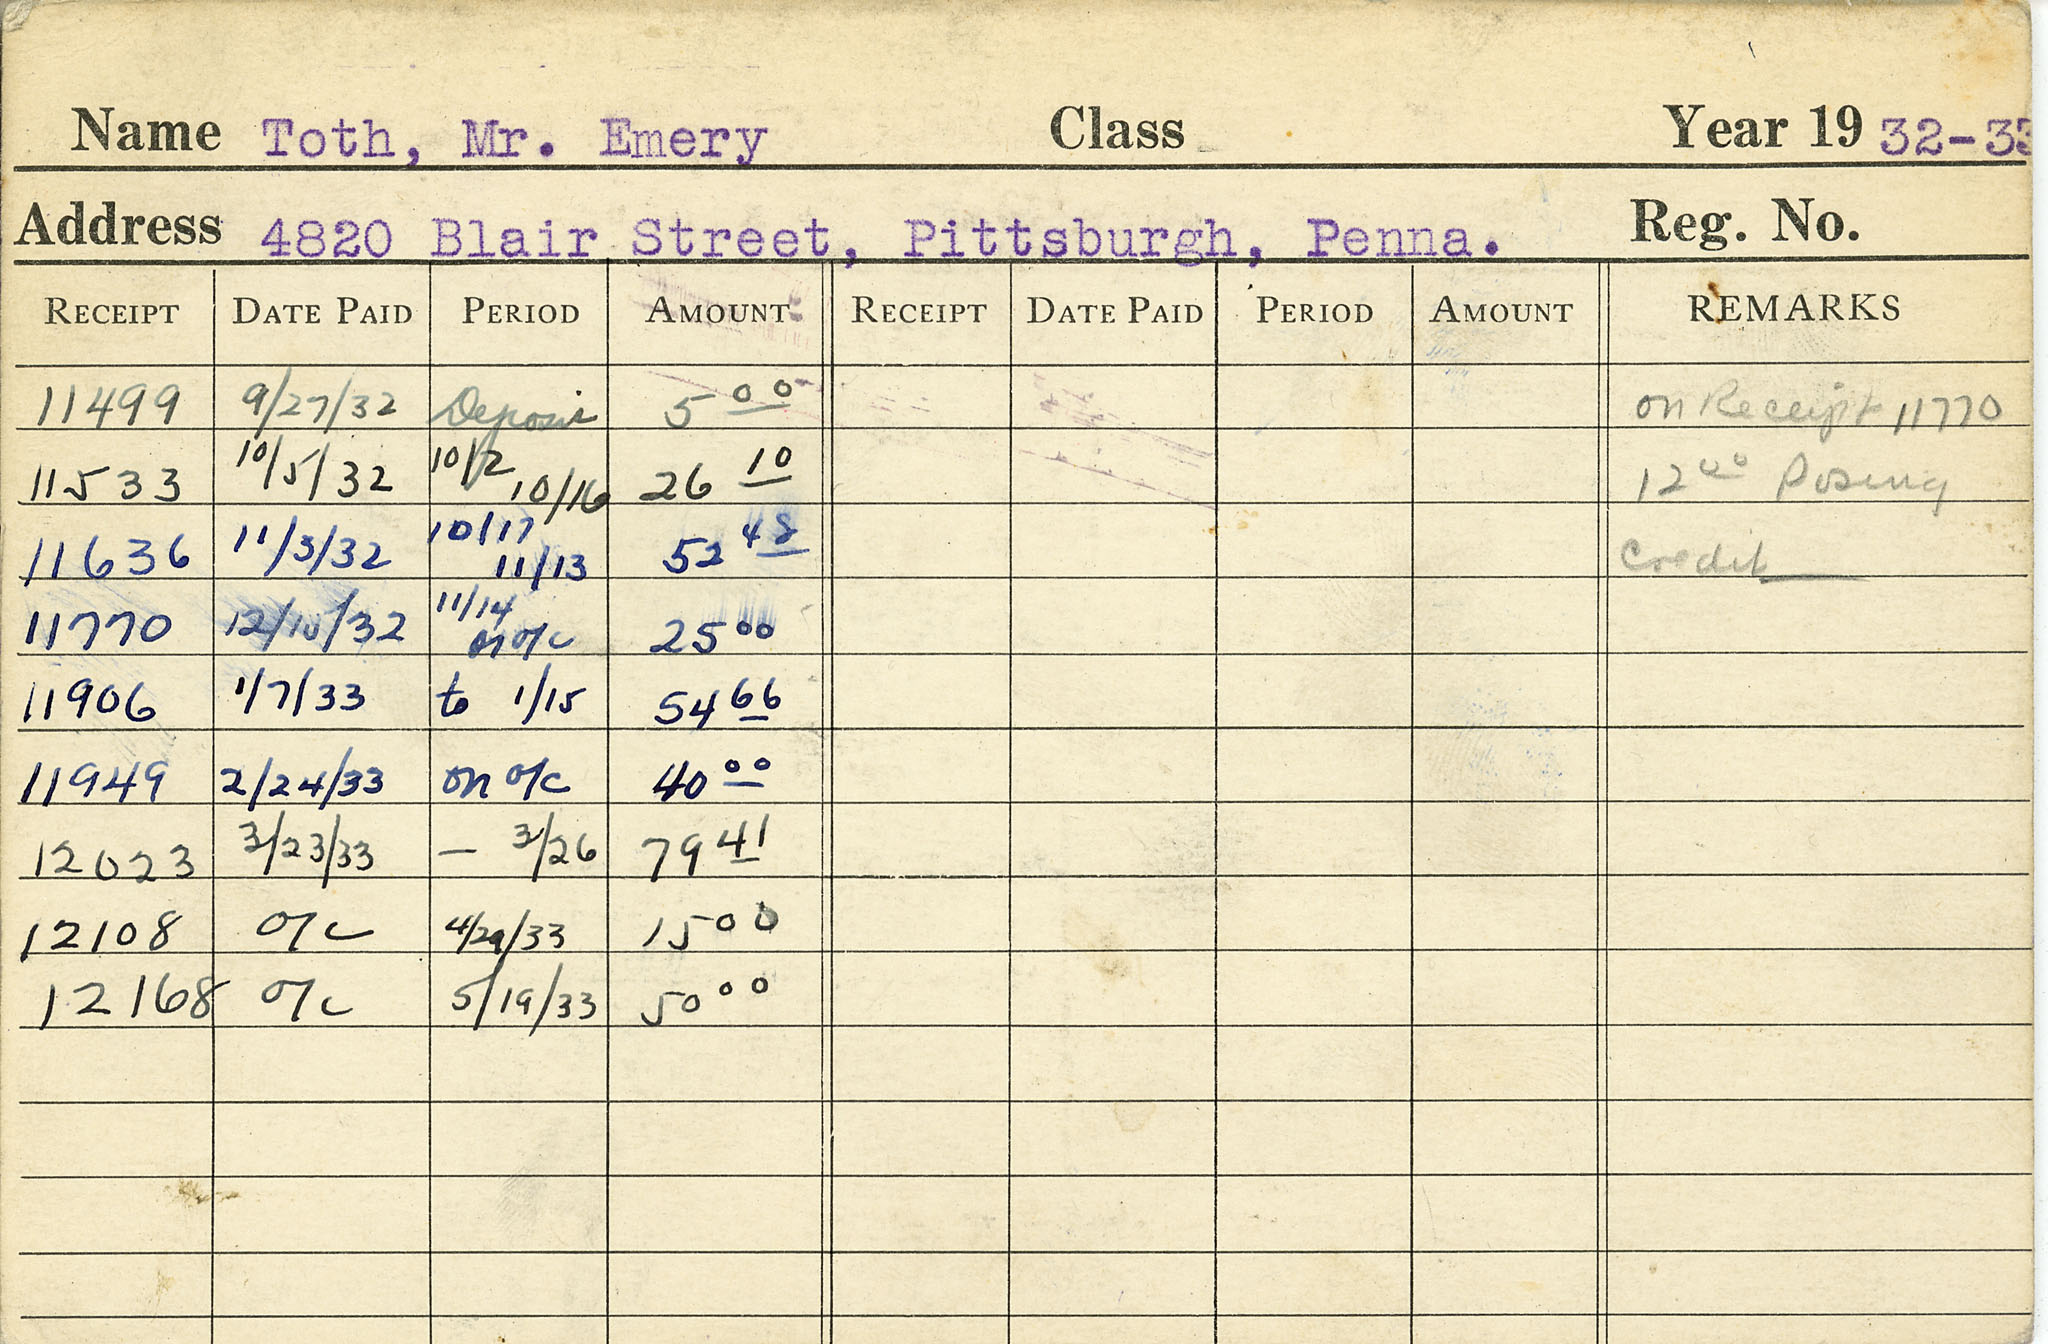 Name Toth, Mr. Emery Class Year 19 32-33
Address 4820 Blair Street, Pittsburgh, Penna. Reg. No.
RECEIPT DATE PAID PERIOD AMOUNT RECEIPT DATE PAID PERIOD AMOUNT REMARKS
11499 9/27/32 Deposit 5 00 on Receipt 11770
11533 10/5/32 10/2 10/16 26 10 12 00 Posing
11636 11/3/32 10/17 11/13 52 48 Credit
11770 12/10/32 11/14 on o/c 25 00
11906 1/7/33 to 1/15 54 66
11949 2/24/33 on o/c 40 00
12023 3/23/33 — 3/26 79 41
12108 o/c 4/29/33 15 00
12168 o/c 5/19/33 50 00